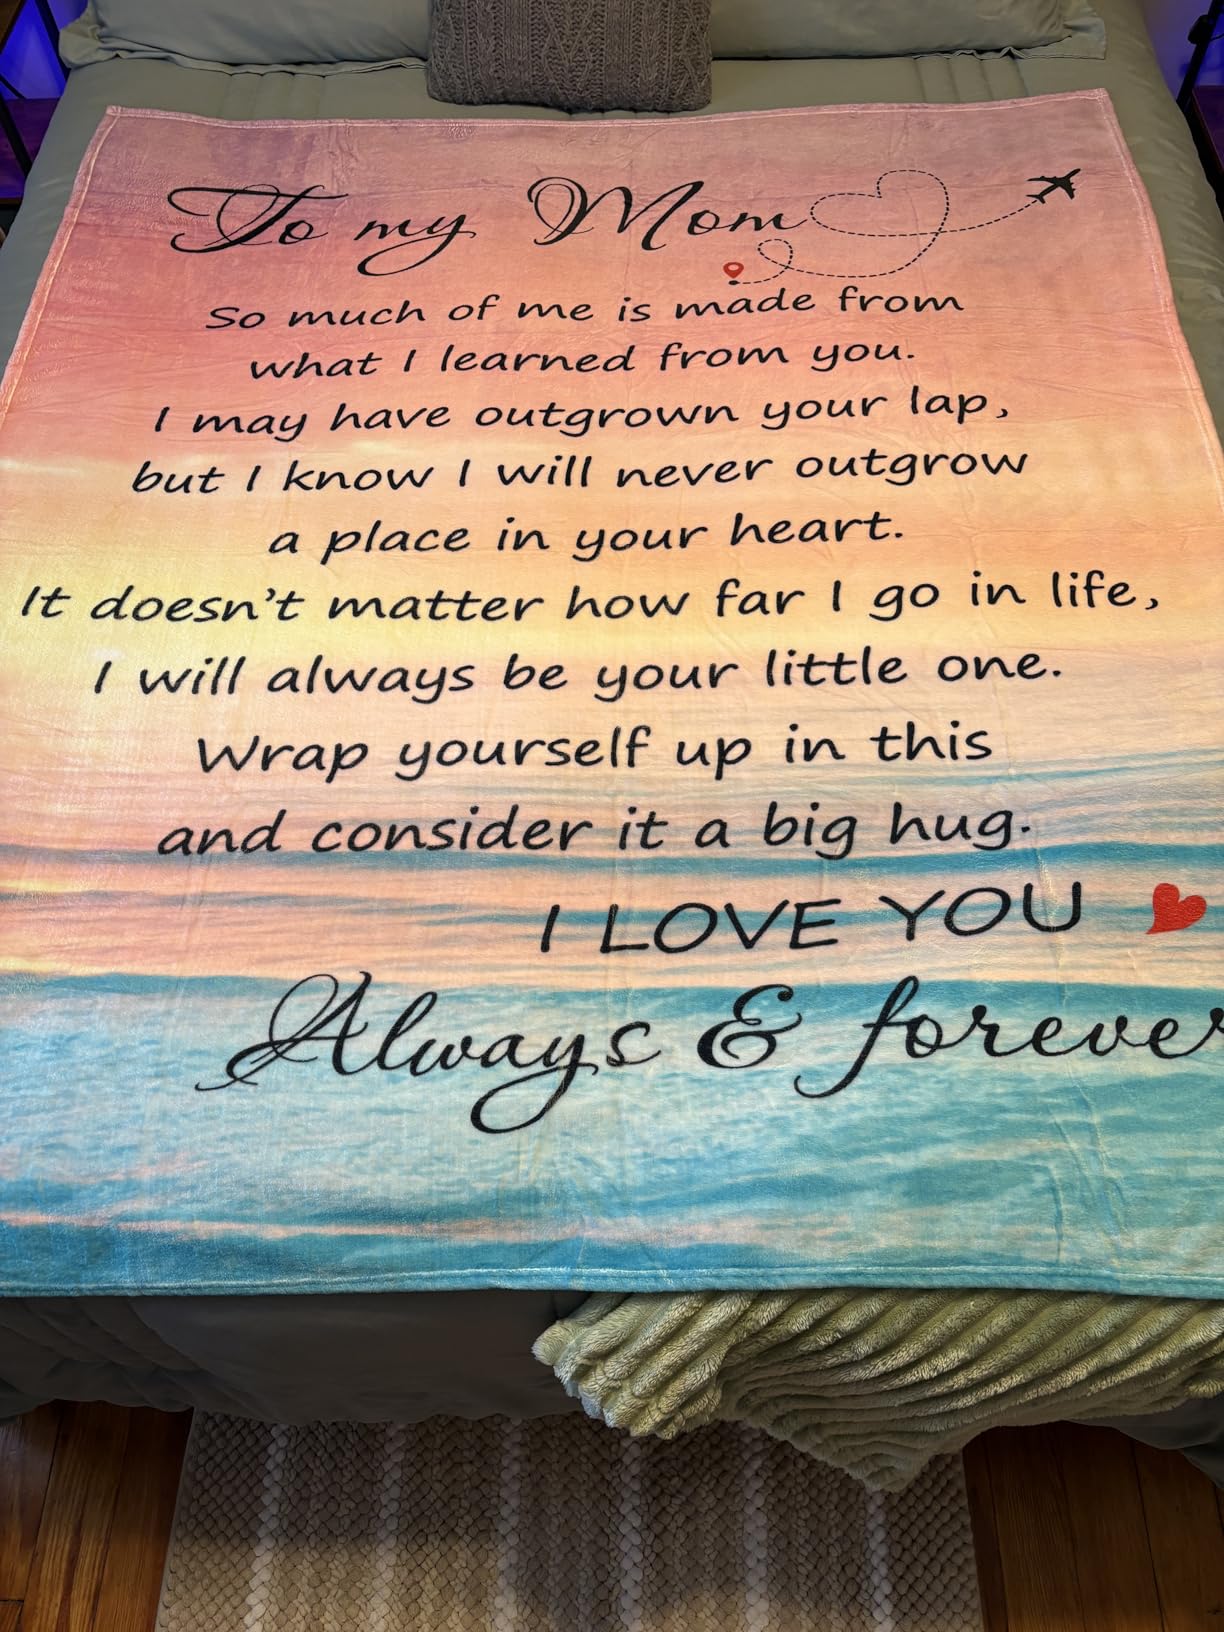 To my Mom
So much of me is made from
what I learned from you.
I may have outgrown your lap,
but I know I will never outgrow
a place in your heart.
It doesn't matter how far I go in life,
I will always be your little one.
Wrap yourself up in this
and consider it a big hug.
I LOVE YOU
Always & forever